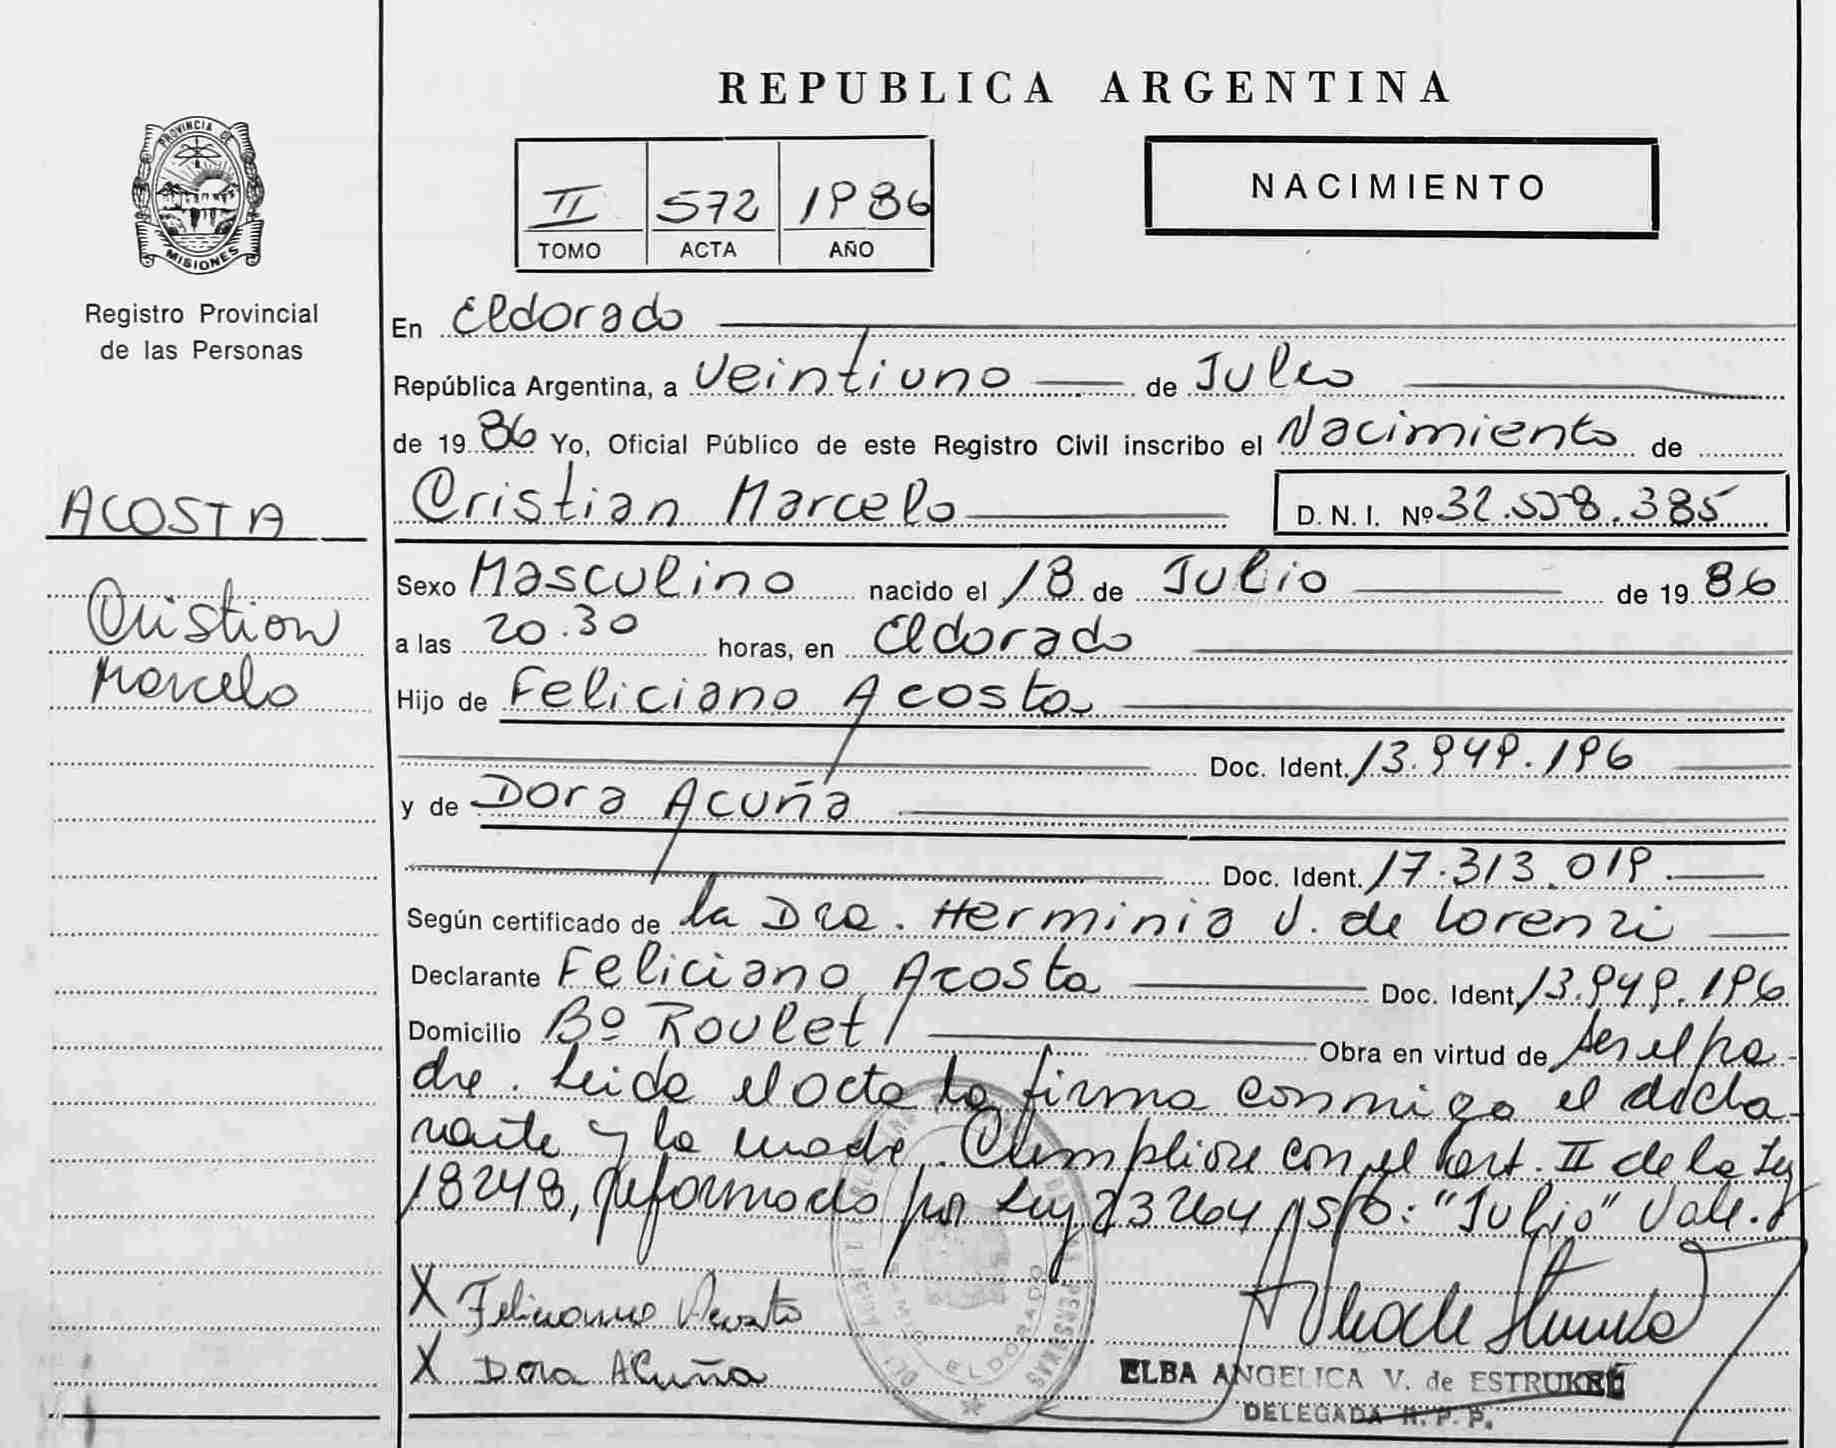 REPUBLICA ARGENTINA
PROVINCIA DE
MISIONES
Registro Provincial
de las Personas
II 572 1986
TOMO ACTA AÑO
NACIMIENTO
ACOSTA
Cristian
Marcelo
En Eldorado
República Argentina, a Veintiuno de Julio
de 1986 Yo, Oficial Público de este Registro Civil inscribo el Nacimiento de
Cristian Marcelo D. N. I. Nº 32.558.385
Sexo Masculino nacido el 18 de Julio de 1986
a las 20.30 horas, en Eldorado
Hijo de Feliciano Acosta
Doc. Ident. 13.949.196
y de Dora Acuña
Doc. Ident. 17.313.019
Según certificado de la Dra. Herminia V. de Lorenzi
Declarante Feliciano Acosta Doc. Ident. 13.949.196
Domicilio Bº Roulet Obra en virtud de ser el pa-
dre. Leida el acta la firma conmigo el decla-
rante y la madre. Cumpliose con el art. II de la Ley
18248, reformado por Ley 23264 s/b: "Julio" Vale.
X Feliciano Acosta
X Dora Acuña
ELDORADO
ELBA ANGELICA V. de ESTRUKEL
DELEGADA R. P. P.